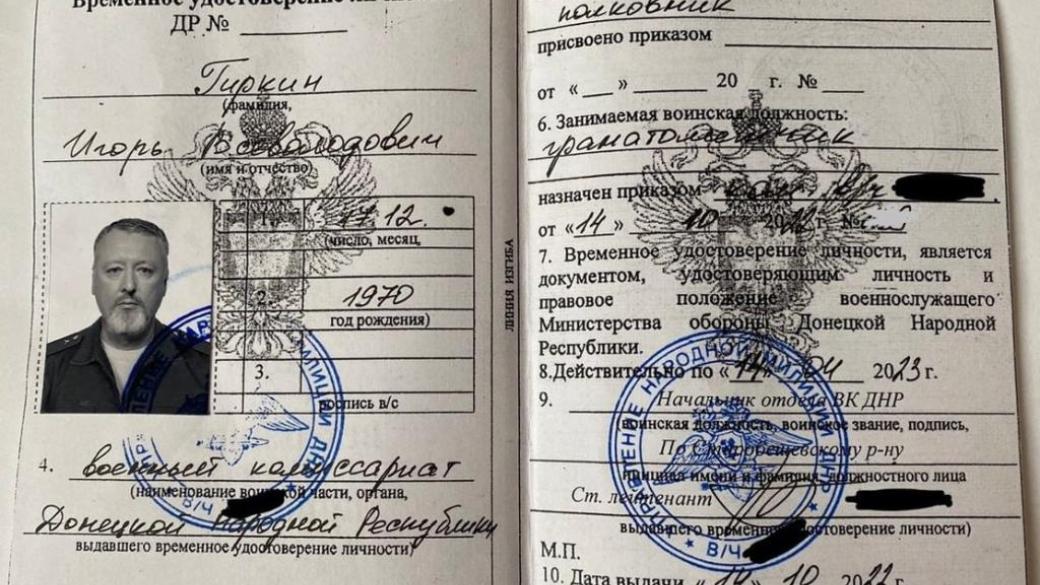 Временное удостоверение
ДР №
Гиркин
(фамилия,
Игорь Всеволодович
(имя и отчество)
1. 17.12.
(число, месяц,
2. 1970
год рождения)
3.
роспись в/с
4. военный комиссариат
(наименование воинской части, органа,
Донецкой Народной Республики
выдавшего временное удостоверение личности)
В/Ч
ЛИНИЯ ИЗГИБА
полковник
присвоено приказом
от « » 20 г. №
6. Занимаемая воинская должность:
гранатометчик
назначен приказом в/ч
от «14» 10 2022 г. №
7. Временное удостоверение личности, является
документом, удостоверяющим личность и
правовое положение военнослужащего
Министерства обороны Донецкой Народной
Республики.
8.Действительно по «14» 04 2023 г.
9. Начальник отдела ВК ДНР
(воинская должность, воинское звание, подпись,
По Старобешевскому р-ну
инициал имени и фамилия, должностного лица
Ст. лейтенант
выдавшего временное удостоверение личности)
В/Ч
М.П.
10. Дата выдачи «14» 10 2022 г.